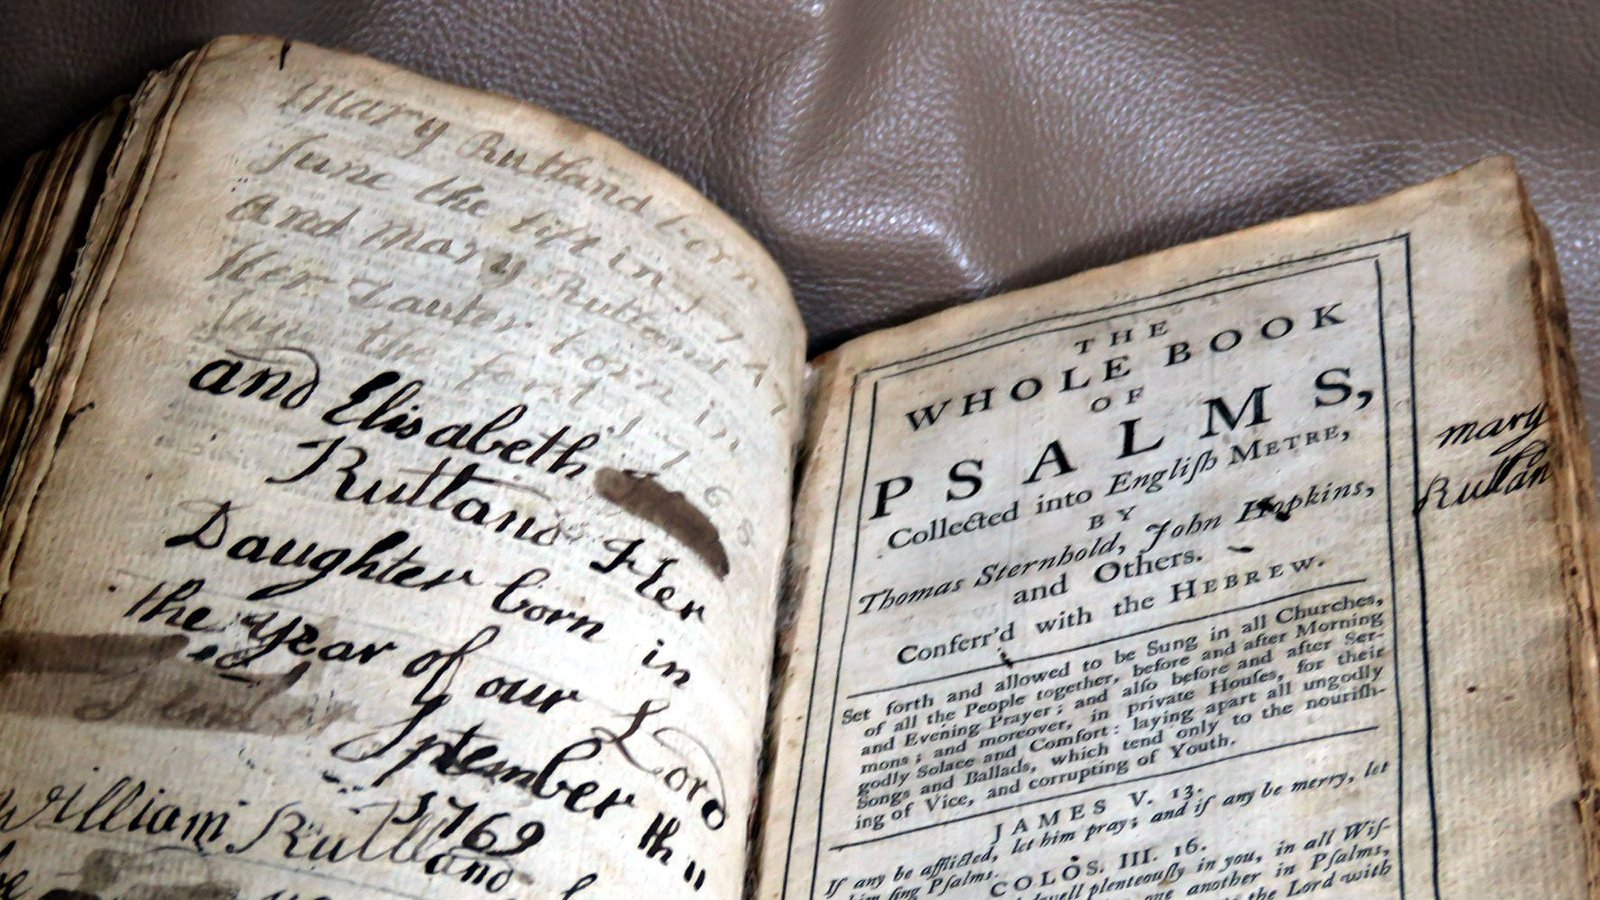 Mary Rutland born
June the fift in 1747
and Mary Rutland
Her Dauter born in
June the 1768
and Elisabeth
Rutland Her
Daughter born in
the year of our Lord
September th 11
1769
William Rutland
mary
Rutlan
THE
WHOLE BOOK
OF
PSALMS,
Collected into Engliſh METRE,
BY
Thomas Sternhold, John Hopkins,
and Others.
Conferr'd with the HEBREW.
Set forth and allowed to be Sung in all Churches,
of all the People together, before and after Morning
and Evening Prayer; and alſo before and after Ser-
mons; and moreover, in private Houſes, for their
godly Solace and Comfort: laying apart all ungodly
Songs and Ballads, which tend only to the nouriſh-
ing of Vice, and corrupting of Youth.
JAMES V. 13.
If any be afflicted, let him pray; and if any be merry, let
him ſing Pſalms.
COLOS. III. 16.
dwell plenteouſly in you, in all Wiſ-
one another in Pſalms,
the Lord with